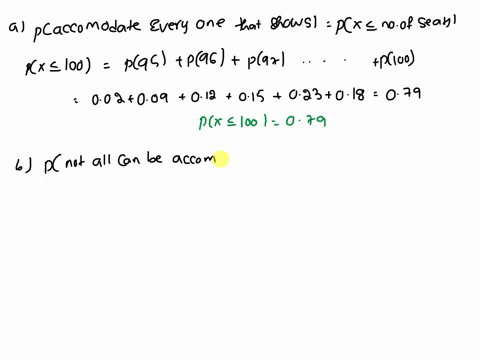 a) p(accomodate Every one that shows) = p(x ≤ no. of seats)
p(x ≤ 100) = p(95) + p(96) + p(97) . . . . +p(100)
= 0.02 + 0.09 + 0.12 + 0.15 + 0.23 + 0.18 = 0.79
p(x ≤ 100) = 0.79
b) p( not all can be accom